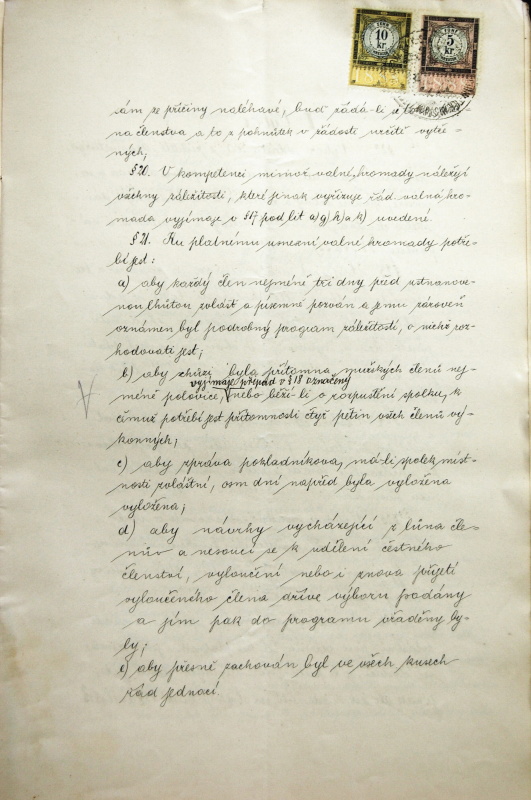 10 kr
5 kr
sám ze příčiny naléhavé, buď žádá-li
na členstva a to z pohnutek v žádosti určitě vytče-
ných;
§20. V kompetenci mimoř. valné hromady náležejí
všechny záležitosti, které jinak vyřizuje řád. valná hro-
mada vyjímaje v §17 pod lit a) g) h) a k) uvedené.
§21. Ku platnému usnesení valné hromady potře-
bí jest:
a) aby každý člen nejméně tři dny před ustanove-
nou lhůtou zvlást a písemně pozván a jemu zároveň
oznámen byl podrobný program záležitostí, o nichž roz-
hodovati jest;
b) aby schůzi byla přítomna mužských členů nej-
vyjímaje případ v §18 označený
méně polovice, nebo běží-li o rozpuštění spolku, k
čímuž potřebí jest přítomnosti čtyř pětin všech členů vý-
konných;
c) aby zpráva pokladníkova, má-li spolek míst-
nosti zvláštní, osm dní napřed byla vyložena
vyložena;
d) aby návrhy vycházející z lůna čle-
nův a nesoucí se k udělení čestného
členství, vyloučení nebo i znova přijetí
vyloučeného člena dříve výboru podány
a jím pak do programu vřaděny by-
ly;
e) aby přesně zachován byl ve všech kusech
řád jednací.